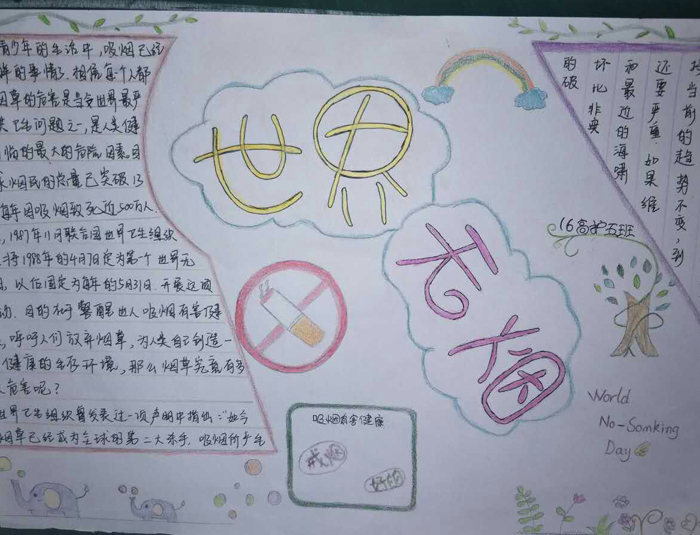 青少年的生活中,吸烟已经
年的事情了.相信每个人都
烟草的危害是当今世界最严
类卫生问题之一,是人类健
临的最大的危险因素.目
烟民的总量已突破13
每年因吸烟致死近500万人.
,1987年11月联合国世界卫生组织
将1988年的4月7日定为第一个世界无
日,以后固定为每年的5月31日.开展这项
动.目的在于警醒世人吸烟有害健
,呼吁人们放弃烟草,为人类自创造一
健康的生存环境,那么烟草究竟有多
危害呢?
世界卫生组织曾发表过一项声明中指出:"如今
烟草已经成为全球的第二大杀手.吸烟所产生
世界
无烟
吸烟有害健康
戒烟
好的
当前的趋势不变,到
还要严重.如果维
和最近的海啸
坏比非典
的破
16高护五班
World
No-Somking
Day